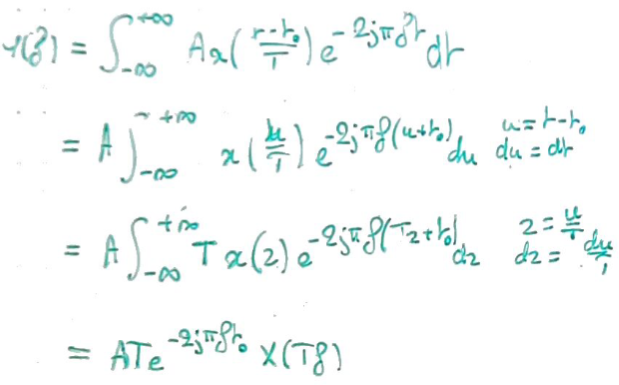 Y(f) = ∫_{-∞}^{+∞} A x( (t-t₀)/T ) e^{-2jπft} dt
= A ∫_{-∞}^{+∞} x( u/T ) e^{-2jπf(u+t₀)} du   u = t-t₀   du = dt
= A ∫_{-∞}^{+∞} T x(z) e^{-2jπf(Tz+t₀)} dz   z = u/T   dz = du/T
= ATe^{-2jπft₀} X(Tf)